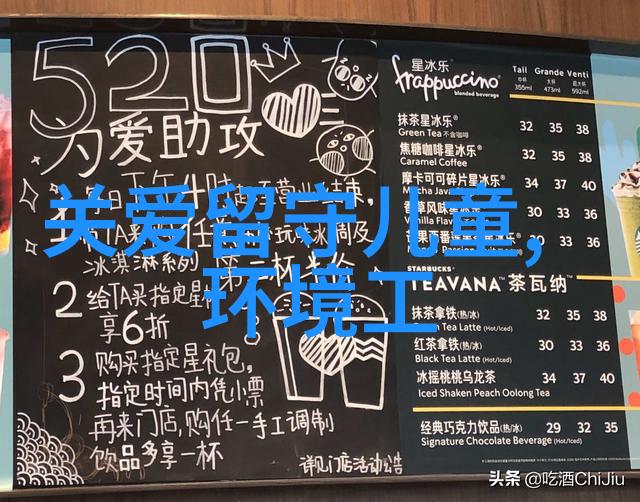 520
为爱助攻
冰淇淋系列 第二杯半价
2 给TA买指定星
享6折
3 购买指定星礼包,
指定时间内凭小票
再来门店,购任一手工调制
饮品多享一杯
详见门店活动公告
关爱留守儿童,
环境工
星冰乐®
frappuccino®
blended beverage
Tall Grande Venti
中杯 大杯 超大杯
355ml 473ml 592ml
抹茶星冰乐® 32 35 38
Green Tea 不含咖啡
焦糖咖啡星冰乐® 32 35 38
Caramel Coffee
摩卡可可碎片星冰乐® 34 37 40
Mocha Java
香草风味星冰乐® 30 33 36
Vanilla Flav
30 33 36
STARBUCKS®
TEAVANA™ 茶瓦纳™
抹茶拿铁(热/冰) 32 35 38
Tea Latte (Hot/Iced)
红茶拿铁(热/冰) 30 33 36
Black Tea Latte (Hot/Iced)
冰摇桃桃乌龙茶 34 37 40
Iced Shaken Peach Oolong Tea
经典巧克力饮品(热/冰) 29 32 35
Signature Chocolate Beverage (Hot/Iced)
头条 @吃酒ChiJiu